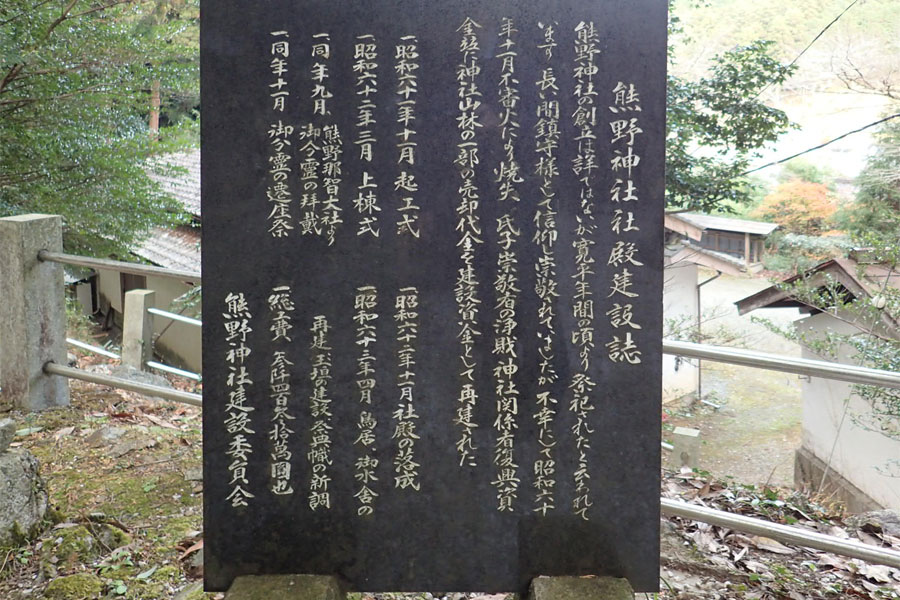 熊野神社社殿建設誌
熊野神社の創立は詳ではないが寛平年間の頃より祭祀されたと云われて
います 長い間鎮守様として信仰し崇敬されていましたが不幸にして昭和六十
年十一月不審火により焼失 氏子崇敬者の浄財神社関係者復興資
金並に神社山林の一部の売却代金を建設資金として再建された
一昭和六十一年十一月 起工式
一昭和六十二年三月 上棟式
一同年九月、熊野那智大社より
御分霊の拝戴
一同年十一月 御分霊の遷座祭
一昭和六十二年十一月社殿の落成
一昭和六十三年四月 鳥居、御水舎の
再建 玉垣の建設 祭典幟の新調
一総工費 参阡四百参拾萬圓也
熊野神社建設委員会